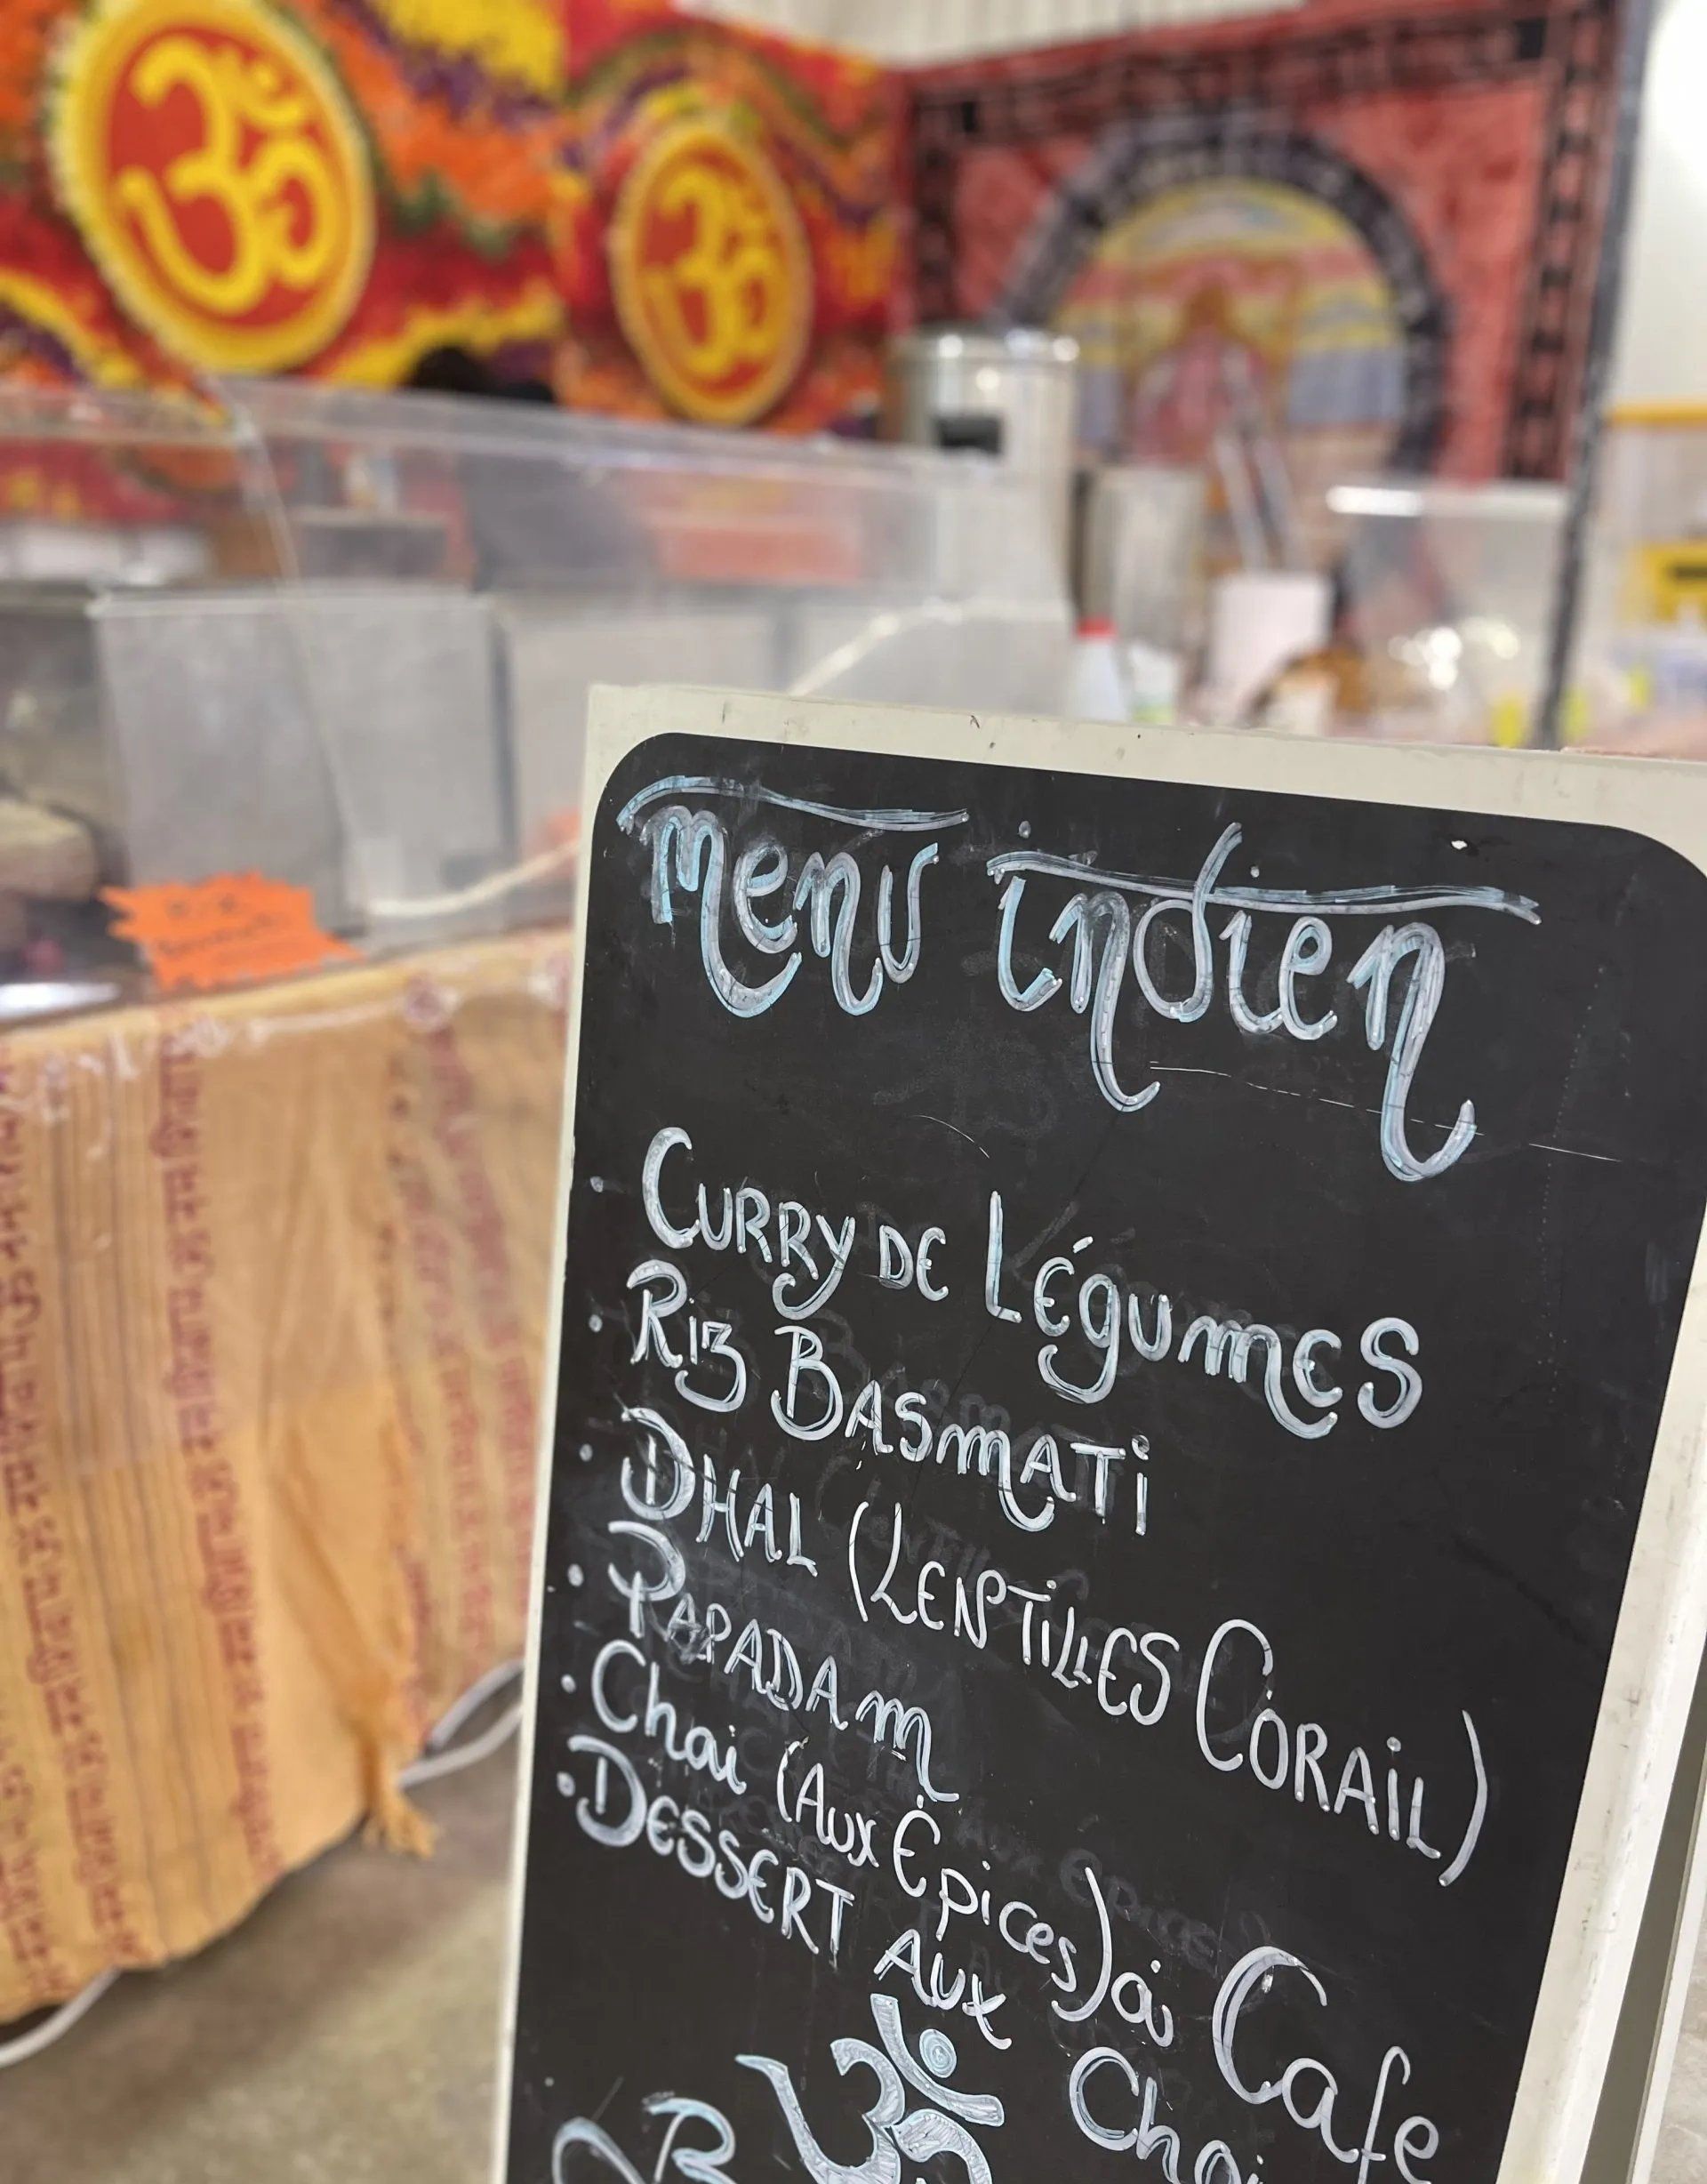 menu indien
• Curry de Légumes
• Riz Basmati
• Dhal (Lentilles Corail)
• Papadam
• Chai (Aux Épices) où Cafe
• Dessert Aux Choi
ॐ
ॐ
ॐ